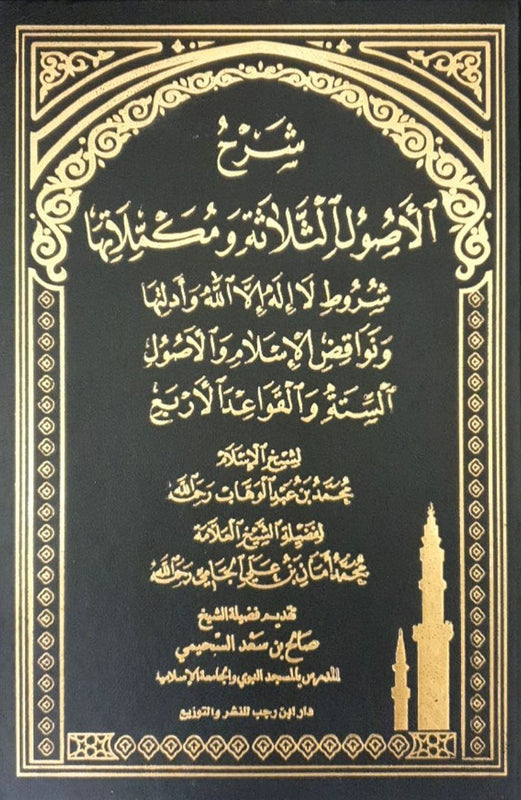 شَرْحُ
الأُصُولِ الثَّلَاثَةِ وَمُكَمِّلَاتِهَا
شُرُوطِ لَا إِلَهَ إِلَّا اللهُ وَأَدِلَّتِهَا
وَنَوَاقِضِ الْإِسْلَامِ وَالْأُصُولِ
السِّتَّةِ وَالْقَوَاعِدِ الْأَرْبَعِ
لِشَيْخِ الْإِسْلَامِ
مُحَمَّدُ بْنُ عَبْدِ الْوَهَّابِ رَحِمَهُ اللهُ
لِفَضِيلَةِ الشَّيْخِ الْعَلَّامَةِ
مُحَمَّدُ أَمَانُ بْنُ عَلِي الْجَامِي رَحِمَهُ اللهُ
تقديم فضيلة الشيخ
صالح بن سعد السحيمي
المدرس بالمسجد النبوي والجامعة الإسلامية
دار ابن رجب للنشر والتوزيع